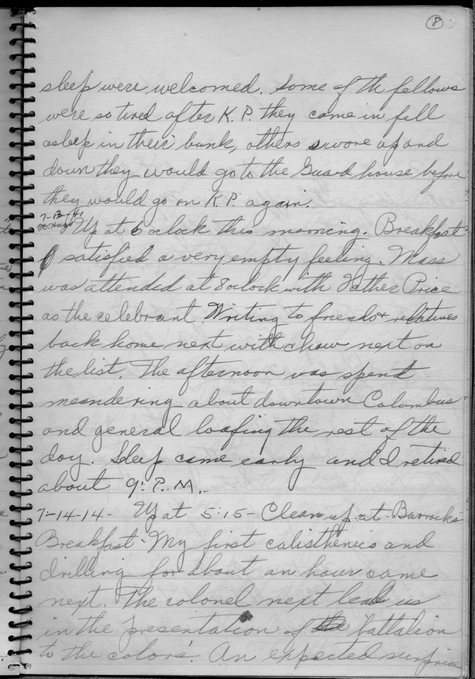 8
sleep were welcomed. Some of the fellows
were so tired after K.P. they came in fell
asleep in their bunk, others swore up and
down they would go to the Guard house before
they would go on K.P. again.
7-13-41
Up at 6 oclock this morning. Breakfast
satisfied a very empty feeling. Mass
was attended at 8 oclock with Father Price
as the celebrant. Writing to friends & relatives
back home next with chow next on
the list. The afternoon was spent
meandering about downtown Columbus
and general loafing the rest of the
day. Sleep came early and I retired
about 9: P.M.
7-14-14- Up at 5:15- Clean up at Barracks
Breakfast- My first calisthenics and
drilling for about an hour came
next. The colonel next lead us
in the presentation of battalion
to the colors. An expected surprise